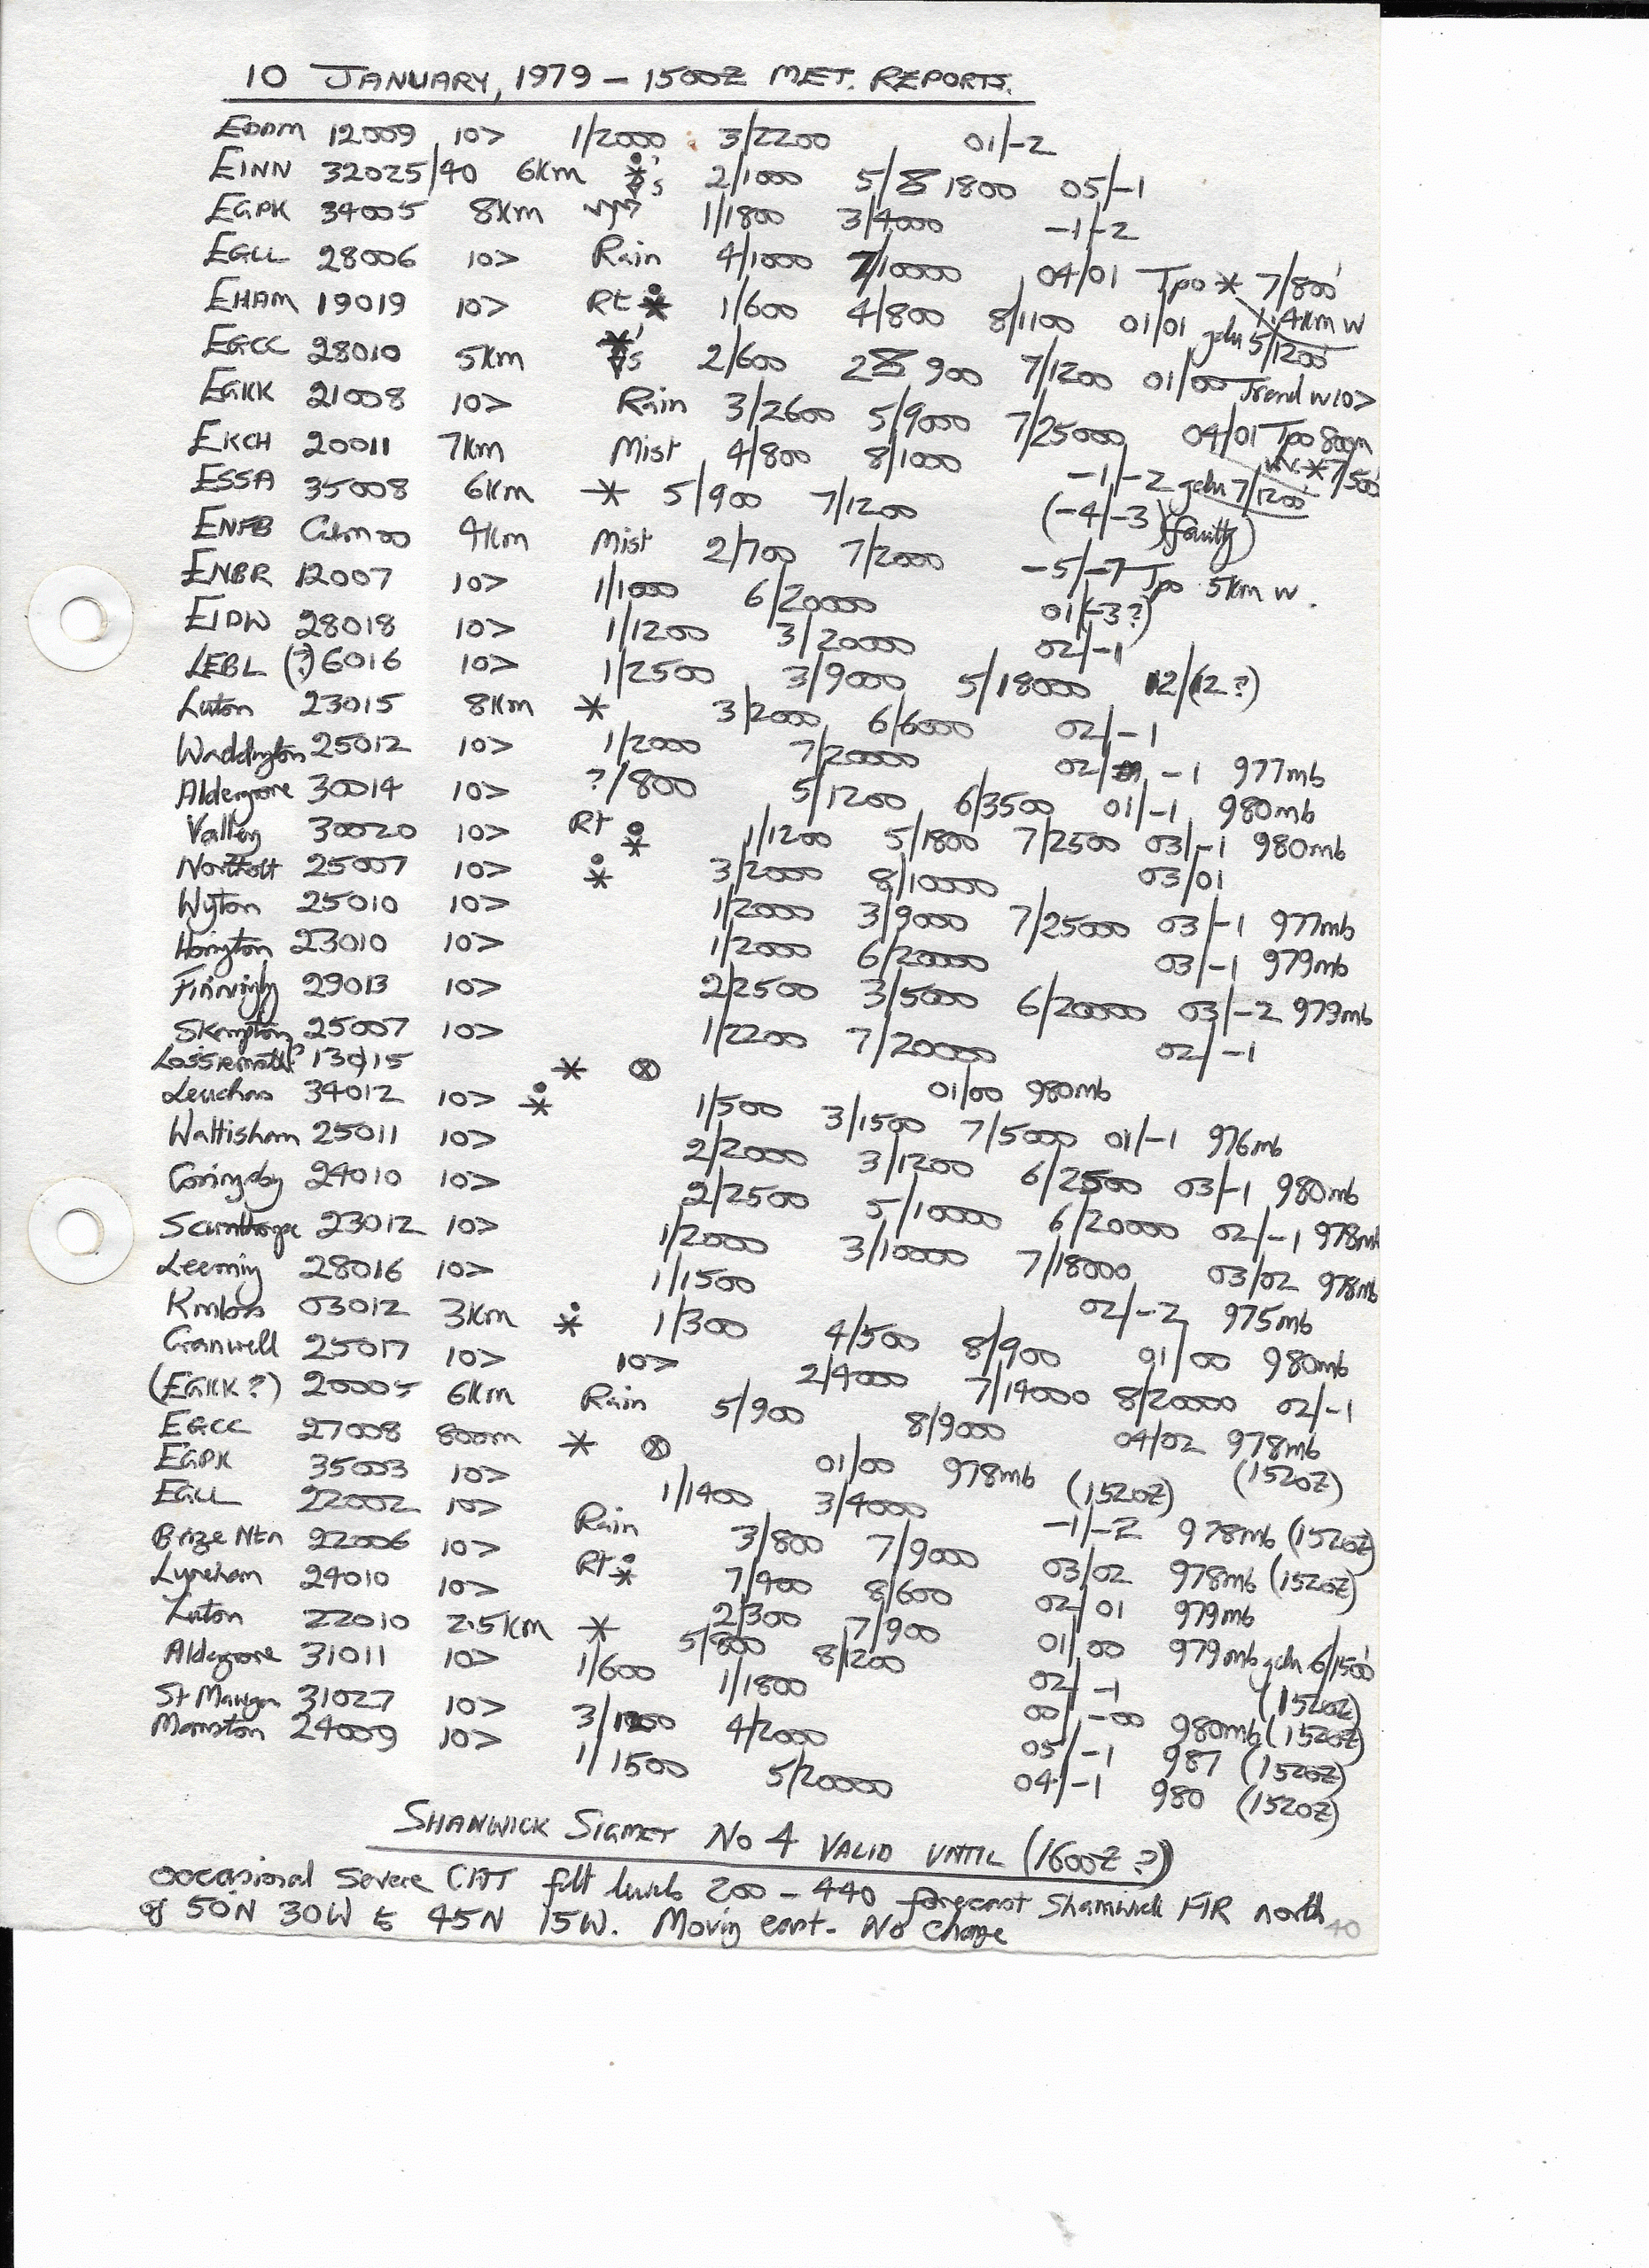 10 JANUARY, 1979 – 1500Z MET. REPORTS.
EDDM 12009 10> 1/2000 3/2200 01/-2
EINN 32025/40 6Km 2/1000 5/8 1800 05/-1
EGPK 34005 8Km 1/1800 3/4000 -1/-2
EGLL 28006 10> Rain 4/1000 7/10000 04/01 Tpo * 7/800' 1.4Km W
EHAM 19019 10> Rt * 1/600 4/800 8/1100 01/01 gdu 5/1200'
EGCC 28010 5Km 2/600 28 900 7/1200 01/00 Trend W10>
EGKK 21008 10> Rain 3/2600 5/9000 7/25000 04/01 Tpo 800m * 7/500
EKCH 20011 7Km Mist 4/800 8/1000 -1/-2 gdu 7/1200'
ESSA 35008 6Km * 5/900 7/1200 (-4/-3) (faulty)
ENFB Calm 00 4Km Mist 2/700 7/2000 -5/-7 Tpo 5Km W.
ENBR 12007 10> 1/1000 6/20000 01/(-3?)
EIDW 28018 10> 1/1200 3/20000 02/-1
LEBL (?)6016 10> 1/2500 3/9000 5/18000 12/(12?)
Luton 23015 8Km * 3/2000 6/6000 02/-1
Waddington 25012 10> 1/2000 7/20000 02/ -1 977mb
Aldergrove 30014 10> ?/800 5/1200 6/3500 01/-1 980mb
Valley 30020 10> Rt * 1/1200 5/1800 7/2500 03/-1 980mb
Northolt 25007 10> * 3/2000 8/10000 03/01
Wyton 25010 10> 1/2000 3/9000 7/25000 03/-1 977mb
Honington 23010 10> 1/2000 6/20000 03/-1 979mb
Finningly 29013 10> 2/2500 3/5000 6/20000 03/-2 979mb
25007 10> 1/2200 7/20000 02/-1
Lossiemouth? 13015 * ⊗ 01/00 980mb
Leuchars 34012 10> * 1/500 3/1500 7/5000 01/-1 976mb
Wattisham 25011 10> 2/2000 3/1200 6/2500 03/-1 980mb
Coningsby 24010 10> 2/2500 5/10000 6/20000 02/-1 978mb
Scunthorpe 23012 10> 1/2000 3/10000 7/18000 03/02 978mb
Leeming 28016 10> 1/1500 02/-2 975mb
Kinloss 03012 3Km * 1/300 4/500 8/900 01/00 980mb
Cranwell 25017 10> 10> 2/4000 7/14000 8/20000 02/-1
(EGKK?) 20005 6Km Rain 5/900 8/9000 04/02 978mb (1520Z)
EGCC 27008 800m * ⊗ 01/00 978mb (1520Z)
EGPK 35003 10> 1/1400 3/4000 -1/-2 978mb (1520Z)
EGLL 22002 10> Rain 3/800 7/9000 03/02 978mb (1520Z)
Brize Ntn 22006 10> Rt * 7/400 8/600 02/01 979mb
Lyneham 24010 10> 2/300 7/900 01/00 979mb gdu 6/1500'
Luton 22010 2.5Km * 5/800 8/1200 02/-1 (1520Z)
Aldergrove 31011 10> 1/600 1/1800 00/-00 980mb (1520Z)
St Mawgan 31027 10> 3/1200 4/2000 05/-1 987 (1520Z)
Manston 24009 10> 1/1500 5/20000 04/-1 980 (1520Z)
SHANWICK SIGMET No 4 VALID UNTIL (1600Z ?)
Occasional Severe CAT flt levels 200 – 440 forecast Shanwick FIR north
of 50N 30W to 45N 15W. Moving east. No change
40